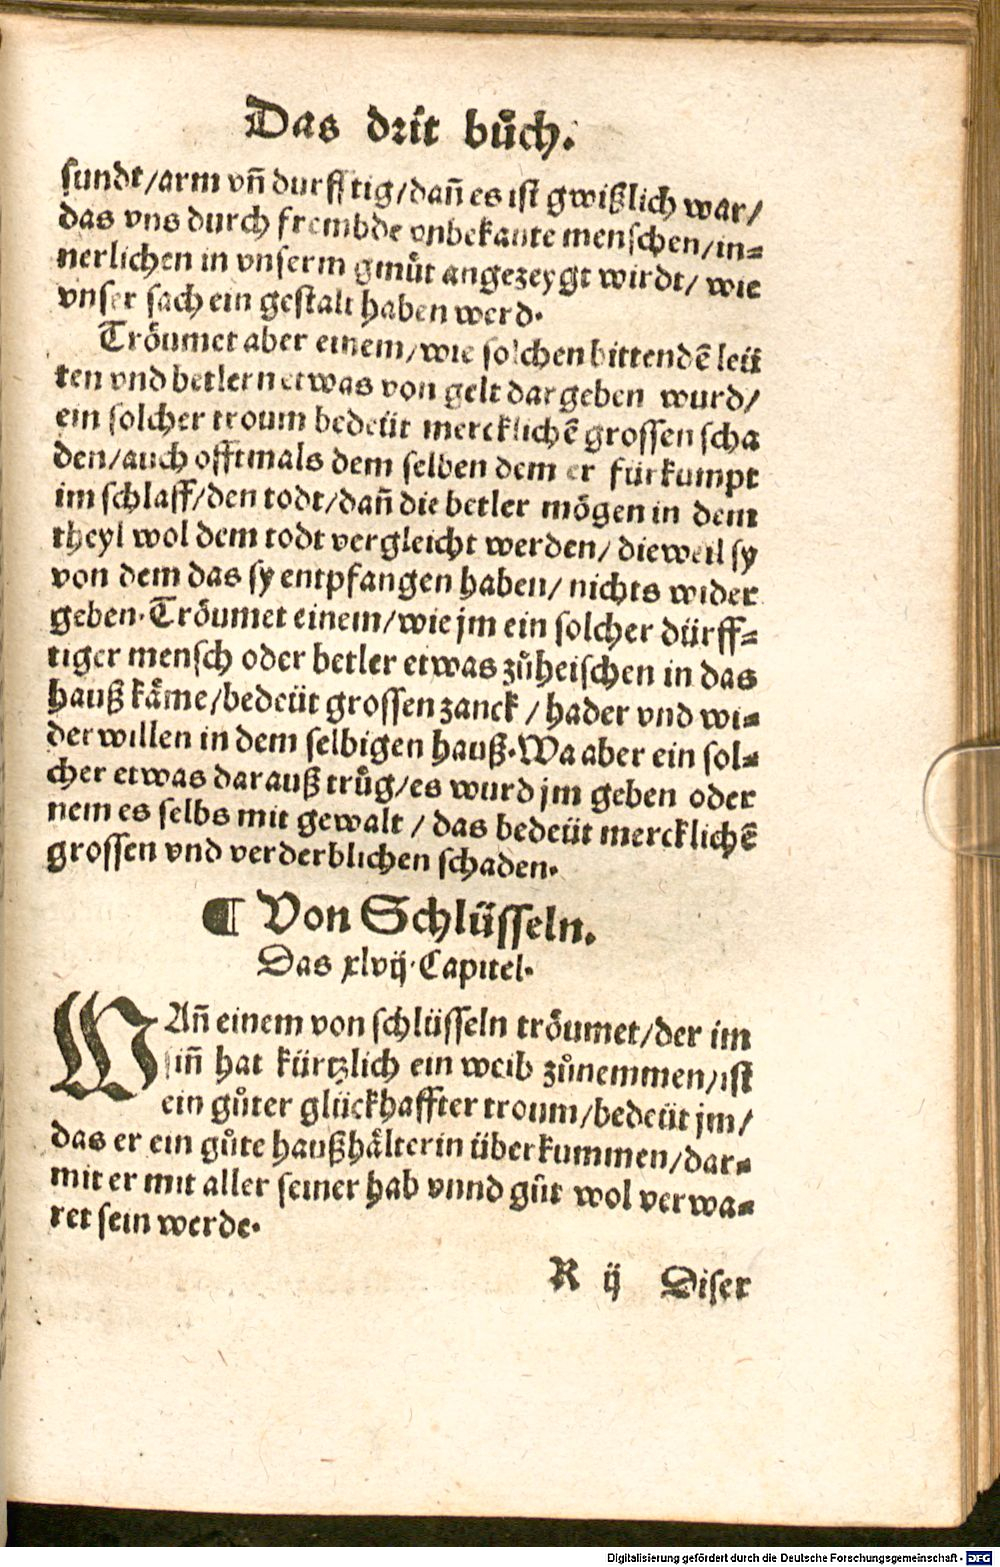 Das drit bůch.
sundt/arm vñ durfftig/dañ es ist gwißlich war/
das vns durch frembde vnbekante menschen/in-
nerlichen in vnserm gmůt angezeygt wirdt/ wie
vnser sach ein gestalt haben werd.
Tröumet aber einem/wie solchen bittendē leüt
ten vnd betlern etwas von gelt dargeben wurd/
ein solcher troum bedeüt mercklichē grossen scha
den/auch offtmals dem selben dem er fürkumpt
im schlaff/den todt/dañ die betler mögen in dem
theyl wol dem todt vergleicht werden/ dieweil sy
von dem das sy entpfangen haben/ nichts wider
geben. Tröumet einem/wie jm ein solcher dürff-
tiger mensch oder betler etwas zůheischen in das
hauß käme/bedeüt grossen zanck / hader vnd wi-
derwillen in dem selbigen hauß. Wa aber ein sol-
cher etwas darauß trůg/es wurd jm geben oder
nem es selbs mit gewalt / das bedeüt mercklichē
grossen vnd verderblichen schaden.
¶ Von Schlüsseln.
Das xlvij. Capitel.
WAñ einem von schlüsseln tröumet/der im
siñ hat kürtzlich ein weib zůnemmen/ist
ein gůter glückhaffter troum/bedeüt jm/
das er ein gůte haußhälterin überkummen/dar-
mit er mit aller seiner hab vnnd gůt wol verwa-
ret sein werde.
R ij Diser
Digitalisierung gefördert durch die Deutsche Forschungsgemeinschaft - DFG